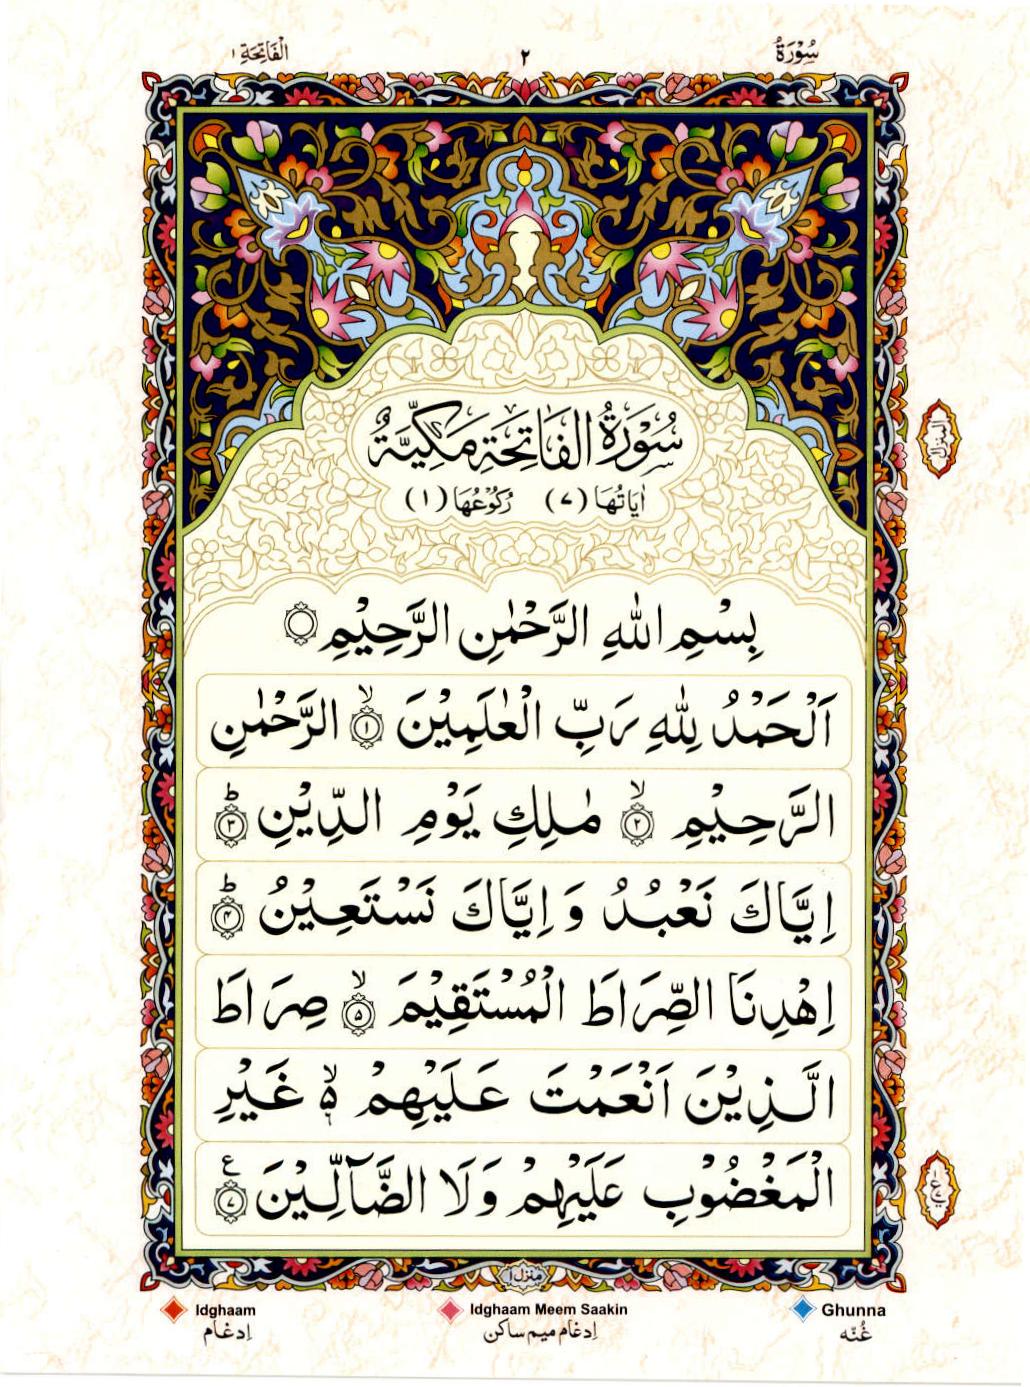 سُوْرَةُ ٢ الْفَاتِحَةِ ١
سُوْرَةُ الْفَاتِحَةِ مَكِيَّةٌ
اٰيَاتُهَا (٧) رُكُوْعُهَا (١)
بِسْمِ اللّٰهِ الرَّحْمٰنِ الرَّحِيْمِ
اَلْحَمْدُ لِلّٰهِ رَبِّ الْعٰلَمِيْنَ ۙ﴿١﴾ الرَّحْمٰنِ
الرَّحِيْمِ ۙ﴿٢﴾ مٰلِكِ يَوْمِ الدِّيْنِ ؕ﴿٣﴾
اِيَّاكَ نَعْبُدُ وَ اِيَّاكَ نَسْتَعِيْنُ ؕ﴿۴﴾
اِهْدِنَا الصِّرَاطَ الْمُسْتَقِيْمَ ۙ﴿۵﴾ صِرَاطَ
الَّذِيْنَ اَنْعَمْتَ عَلَيْهِمْ ۙ۬ ۙ۶ غَيْرِ
الْمَغْضُوْبِ عَلَيْهِمْ وَلَا الضَّآلِّيْنَ ﴿٧﴾ ع
المنزل
منزل ١
Idghaam Idghaam Meem Saakin Ghunna
اِدغام اِدغام ميم ساكن غُنّه